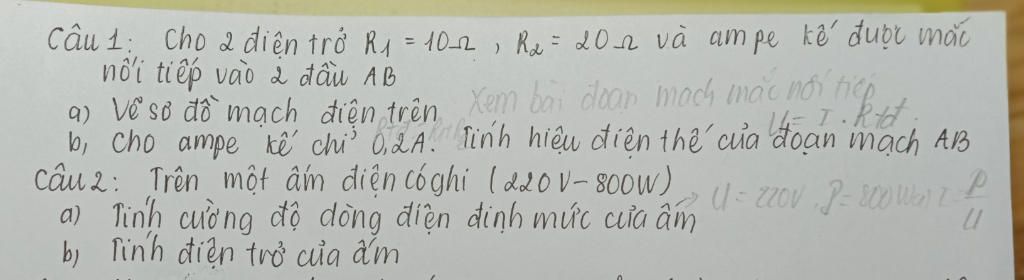 Câu 1: Cho 2 điện trở R1 = 10Ω, R2 = 20Ω và ampe kế được mắc
nối tiếp vào 2 đầu AB
a) Vẽ sơ đồ mạch điện trên Xem bài đoạn mạch mắc nối tiếp
U = I . Rtđ
b, Cho ampe kế chỉ 0,2A. Tính hiệu điện thế của đoạn mạch AB
Câu 2: Trên một ấm điện có ghi (220V-800W)
→ U = 220V, P = 800W I = P/U
a) Tính cường độ dòng điện định mức của ấm
b, Tính điện trở của ấm